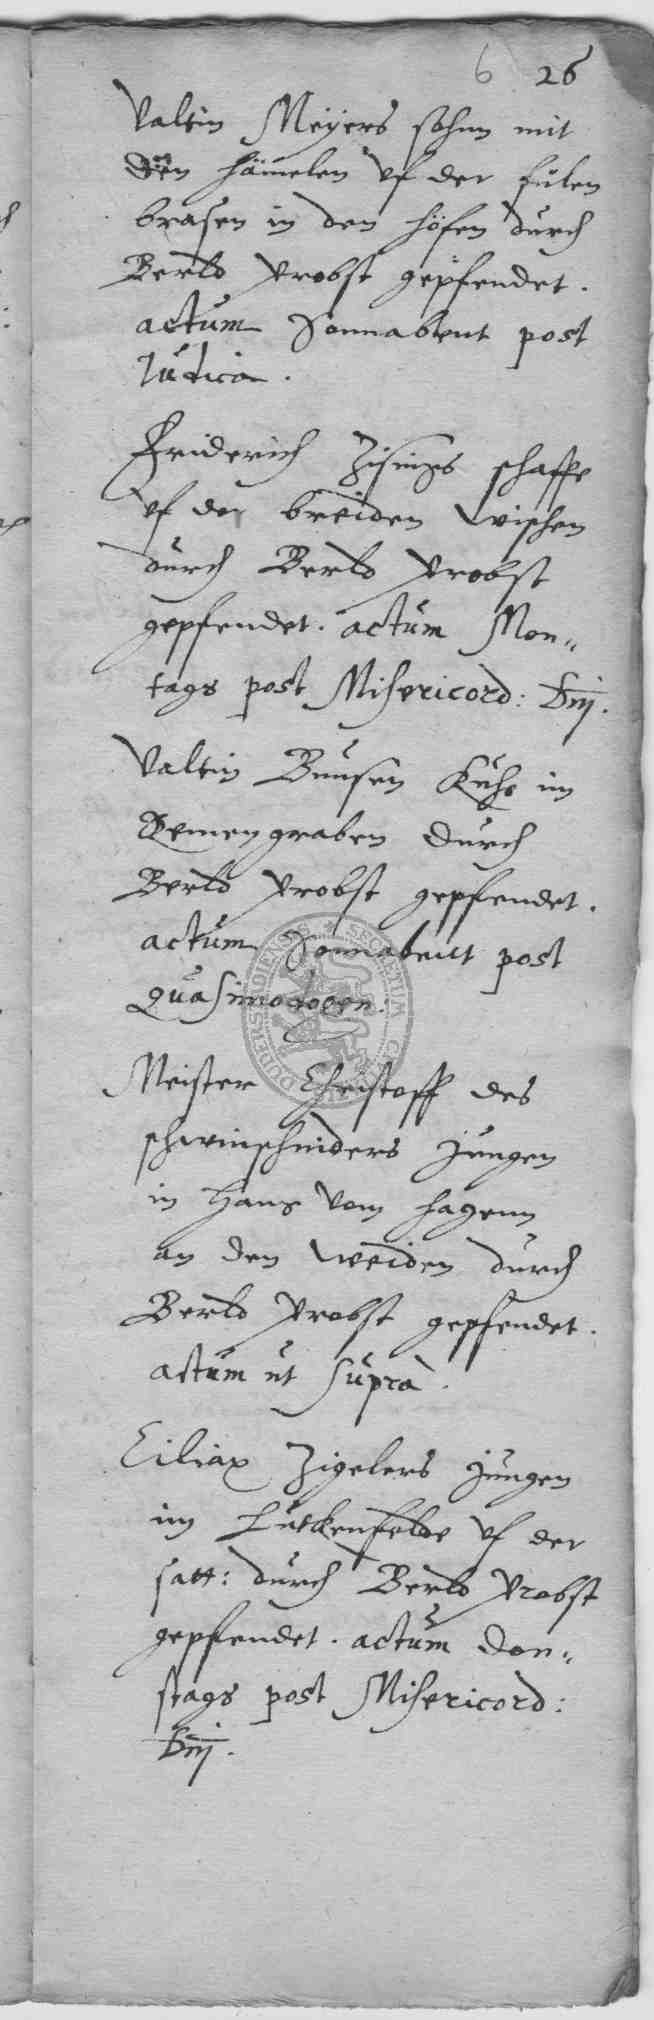 6 26
Valtin Meÿers sohnn mit
den hämelen vf der fulen
brasen in den höfen durch
Berld Probst gepfendet.
actum Sonnabent post
Judica.
Friderich Zisings schaffe
vf der breiden Wischen
durch Berld Probst
gepfendet. actum Mon„
tags post Misericord: Dnj.
Valtin Bunsen Kuhe im
graben durch
Berld Probst gepfendet.
actum Sonnabent post
quasimodogen:
Meister Christoff des
schweinschniders Jungen
in Hans vom hagenn
an den Weiden durch
Berld Probst gepfendet.
actum ut suprà.
Ciliax Zigelers Jungen
im Luttkenfelde vf der
satt: durch Berld Probst
gepfendet. actum Don„
stags post Misericord:
Dnj.